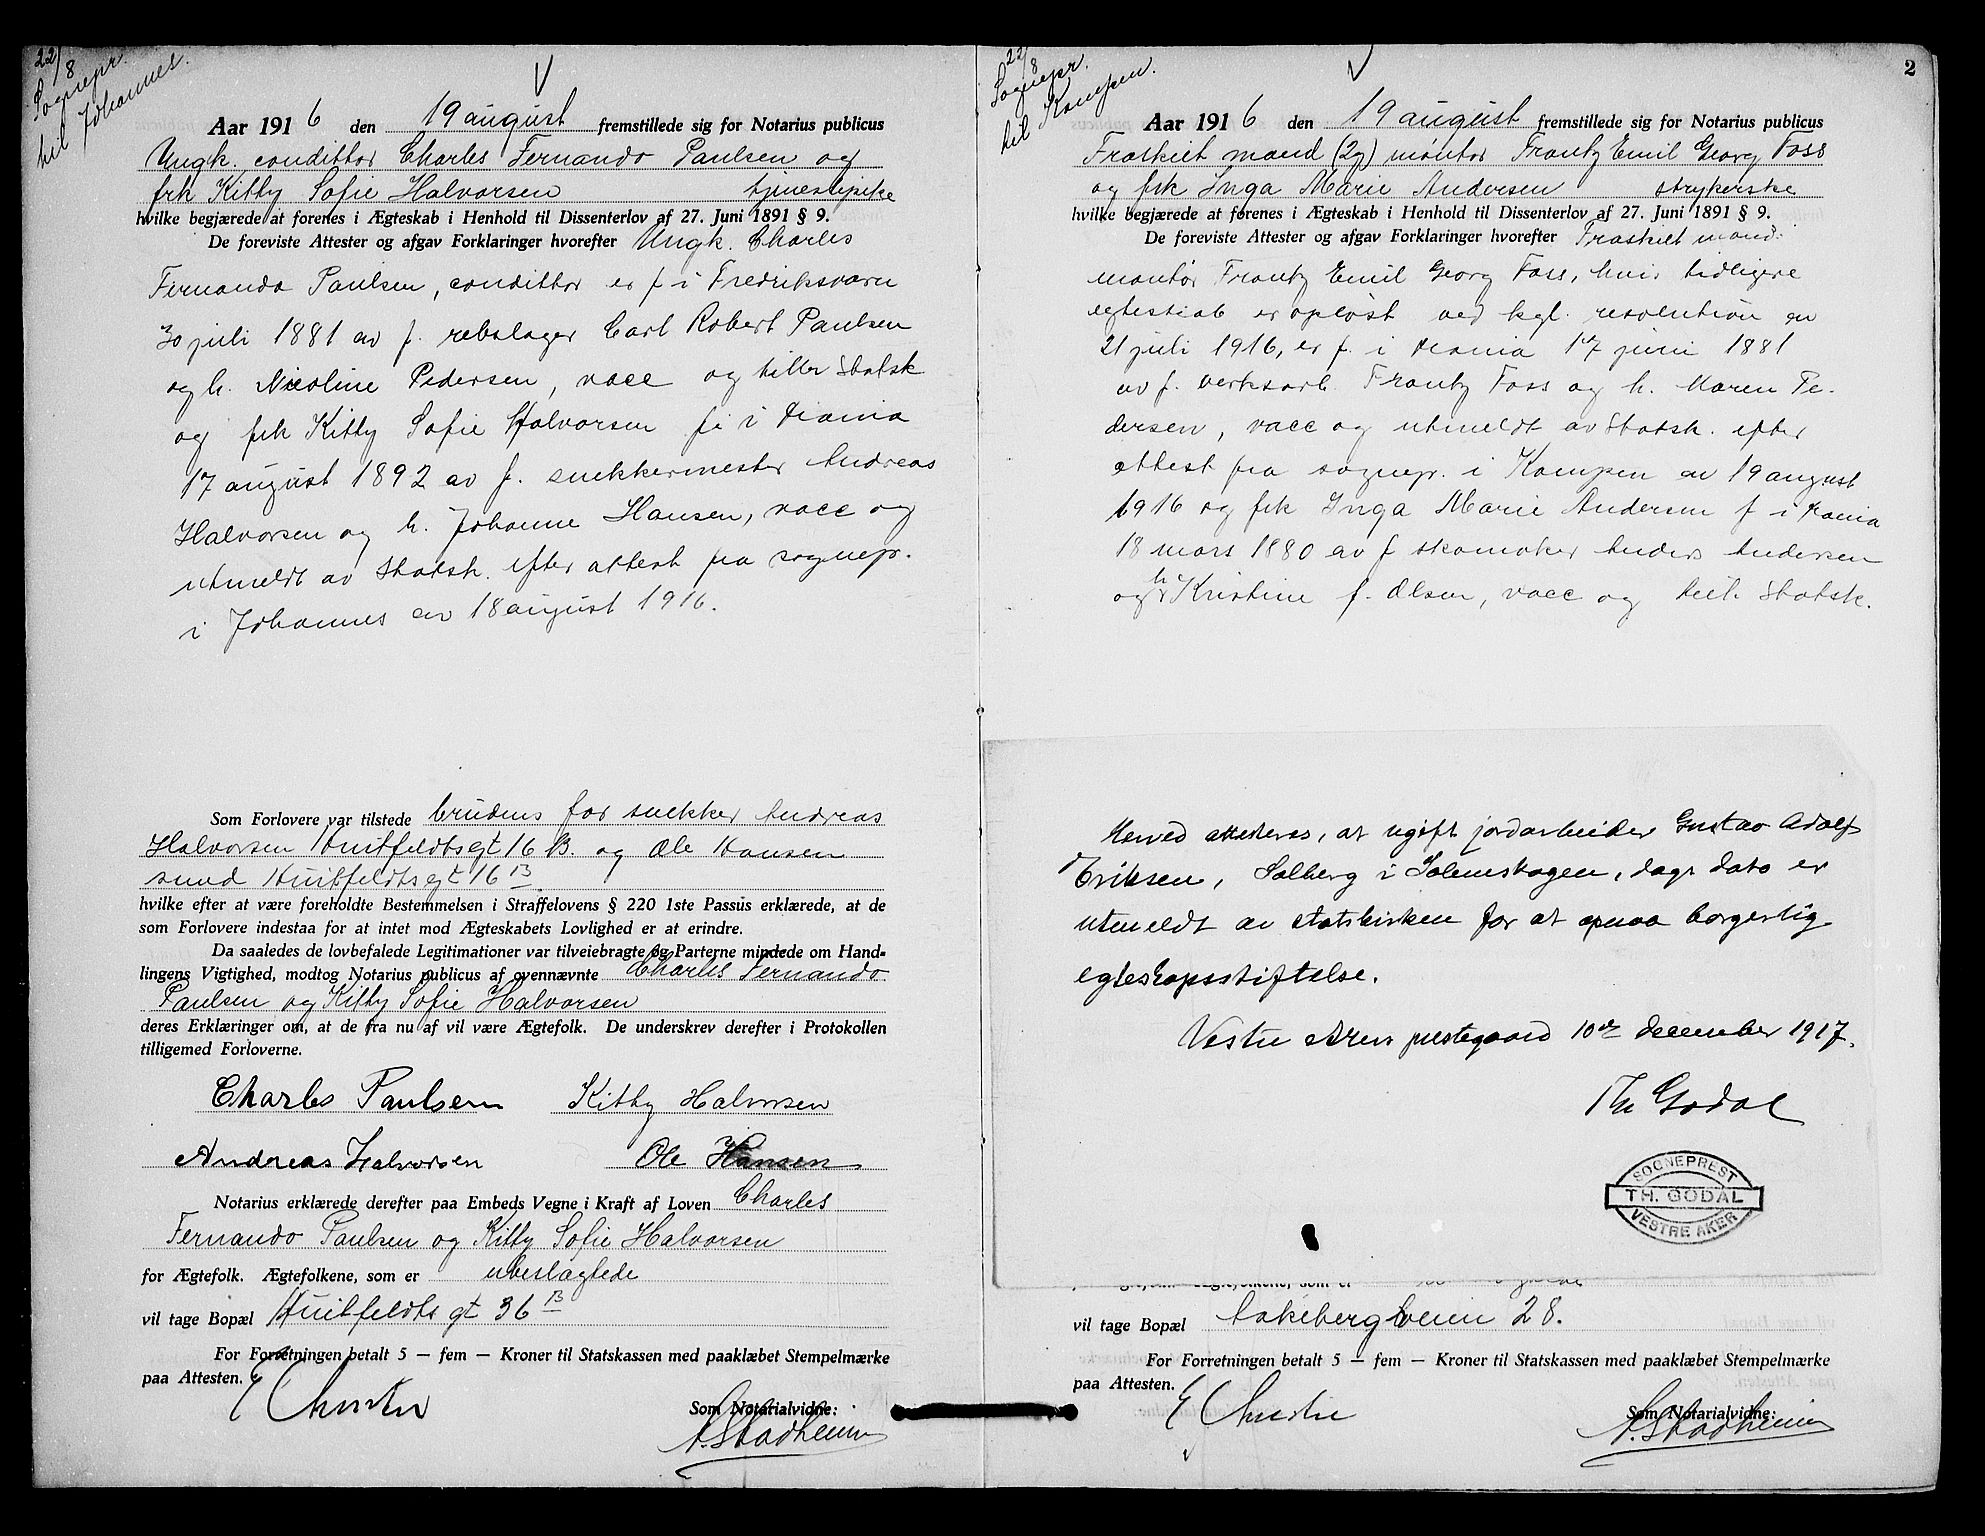 22/8
Sognepr.
til Johannes.
Aar 1916 den 19 august fremstillede sig for Notarius publicus
Ungk. condittor Charles Fernando Paulsen og
frk Kitty Sofie Halvorsen tjenestepike
hvilke begjærede at forenes i Ægteskab i Henhold til Dissenterlov af 27. Juni 1891 § 9.
De foreviste Attester og afgav Forklaringer hvorefter Ungk. Charles
Fernando Paulsen, condittor er f i Fredriksværn
30 juli 1881 av f. rebslager Carl Robert Paulsen
og h. Nicoline Pedersen, vacc og tilhr Statsk
og frk Kitty Sofie Halvorsen f. i Kr.ania
17 august 1892 av f. snekkermester Andreas
Halvorsen og h. Johanne Hansen, vacc og
utmeldt av Statsk. efter attest fra sognepr.
i Johannes av 18 august 1916.
Som Forlovere var tilstede brudens far snekker Andreas
Halvorsen Huitfeldtsgt 16 B. og Ole Hansen
smed Huitfeldtsgt 16 B
hvilke efter at være foreholdte Bestemmelsen i Straffelovens § 220 1ste Passus erklærede, at de
som Forlovere indestaa for at intet mod Ægteskabets Lovlighed er at erindre.
Da saaledes de lovbefalede Legitimationer var tilveiebragte og Parterne mindede om Hand-
lingens Vigtighed, modtog Notarius publicus af ovennævnte Charles Fernando
Paulsen og Kitty Sofie Halvorsen
deres Erklæringer om, at de fra nu af vil være Ægtefolk. De underskrev derefter i Protokollen
tilligemed Forloverne.
Charles Paulsen Kitty Halvorsen
Andreas Halvorsen Ole Hansen
Notarius erklærede derefter paa Embeds Vegne i Kraft af Loven Charles
Fernando Paulsen og Kitty Sofie Halvorsen
for Ægtefolk. Ægtefolkene, som er ubeslægtede
vil tage Bopæl Huitfeldts gt 36 B
For Forretningen betalt 5 — fem — Kroner til Statskassen med paaklæbet Stempelmærke
paa Attesten.
E Christie
Som Notarialvidne:
A. Stadheim
2
22/8
Sognepr.
til Kampen.
Aar 1916 den 19 august fremstillede sig for Notarius publicus
Fraskilt mand (2g) montør Frantz Emil Georg Foss
og frk Inga Marie Andersen strykerske
hvilke begjærede at forenes i Ægteskab i Henhold til Dissenterlov af 27. Juni 1891 § 9.
De foreviste Attester og afgav Forklaringer hvorefter Fraskilt mand
montør Frantz Emil Georg Foss, hvis tidligere
egteskab er opløst ved kgl. resolution av
21 juli 1916, er f. i Kr.ania 17 juni 1881
av f. verksarb. Frantz Foss og h. Maren Pe-
dersen, vacc og utmeldt av Statsk. efter
attest fra sognepr. i Kampen av 19 august
1916 og frk Inga Marie Andersen f i Kr.ania
18 mars 1880 av f skomaker Anders Andersen
og h. Kristine f. Olsen, vacc og tilh. Statsk.
Herved attesteres, at ugift jordarbeider Gustav Adolf
Eriksen, Solberg i Solemskogen, dags dato er
utmeldt av statskirken for at opnaa borgerlig
egteskapsstiftelse.
Vestre Akers prestegaard 10de december 1917.
Th Godal
SOGNEPREST
TH. GODAL
VESTRE AKER
vil tage Bopæl Aakebergveien 28.
For Forretningen betalt 5 — fem — Kroner til Statskassen med paaklæbet Stempelmærke
paa Attesten.
E Christie
Som Notarialvidne:
A. Stadheim